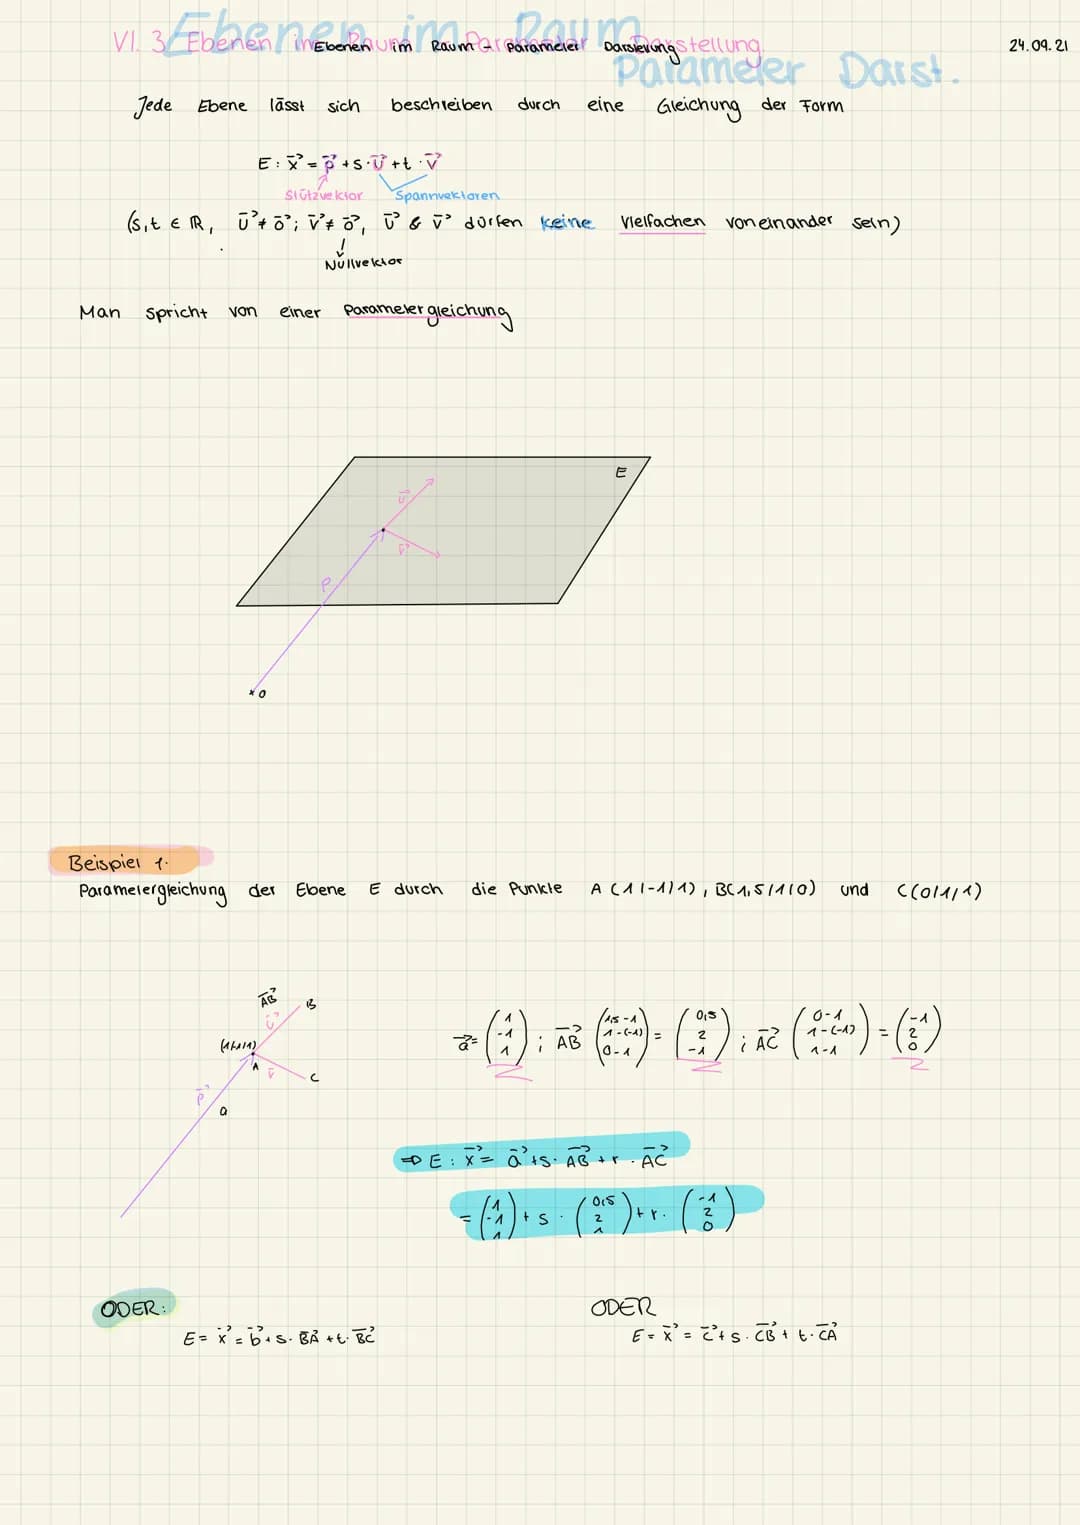 VI. 3 Ebenen im Raum Parameter Darstellung
Ebenen im Raum
Parameter Darst.
Ebenen im Raum - Parameter Darstellung
24.09.21
Jede Ebene lässt sich beschreiben durch eine Gleichung der Form
E : x⃗ = p⃗ + s · u⃗ + t · v⃗
Stützvektor Spannvektoren
(s,t ∈ ℝ, u⃗ ≠ o⃗; v⃗ ≠ o⃗, u⃗ & v⃗ dürfen keine Vielfachen voneinander sein)
Nullvektor
Man spricht von einer Parametergleichung
E
u⃗
v⃗
p
× O
Beispiel 1.
Parametergleichung der Ebene E durch die Punkte A (1|-1|1), B(1,5|1|0) und C(0|1|1)
AB⃗ B
u⃗
(1|-1|1)
A v⃗ C
p⃗ a
a⃗ = (1 -1 1) ; AB⃗ (1,5-1 1-(-1) 0-1) = (0,5 2 -1) ; AC⃗ (0-1 1-(-1) 1-1) = (-1 2 0)
⇒ E : x⃗ = a⃗ + s · AB⃗ + r · AC⃗
= (1 -1 1) + s · (0,5 2 1) + r · (-1 2 0)
ODER:
E = x⃗ = b⃗ + s · BA⃗ + t · BC⃗
ODER
E = x⃗ = c⃗ + s · CB⃗ + t · CA⃗